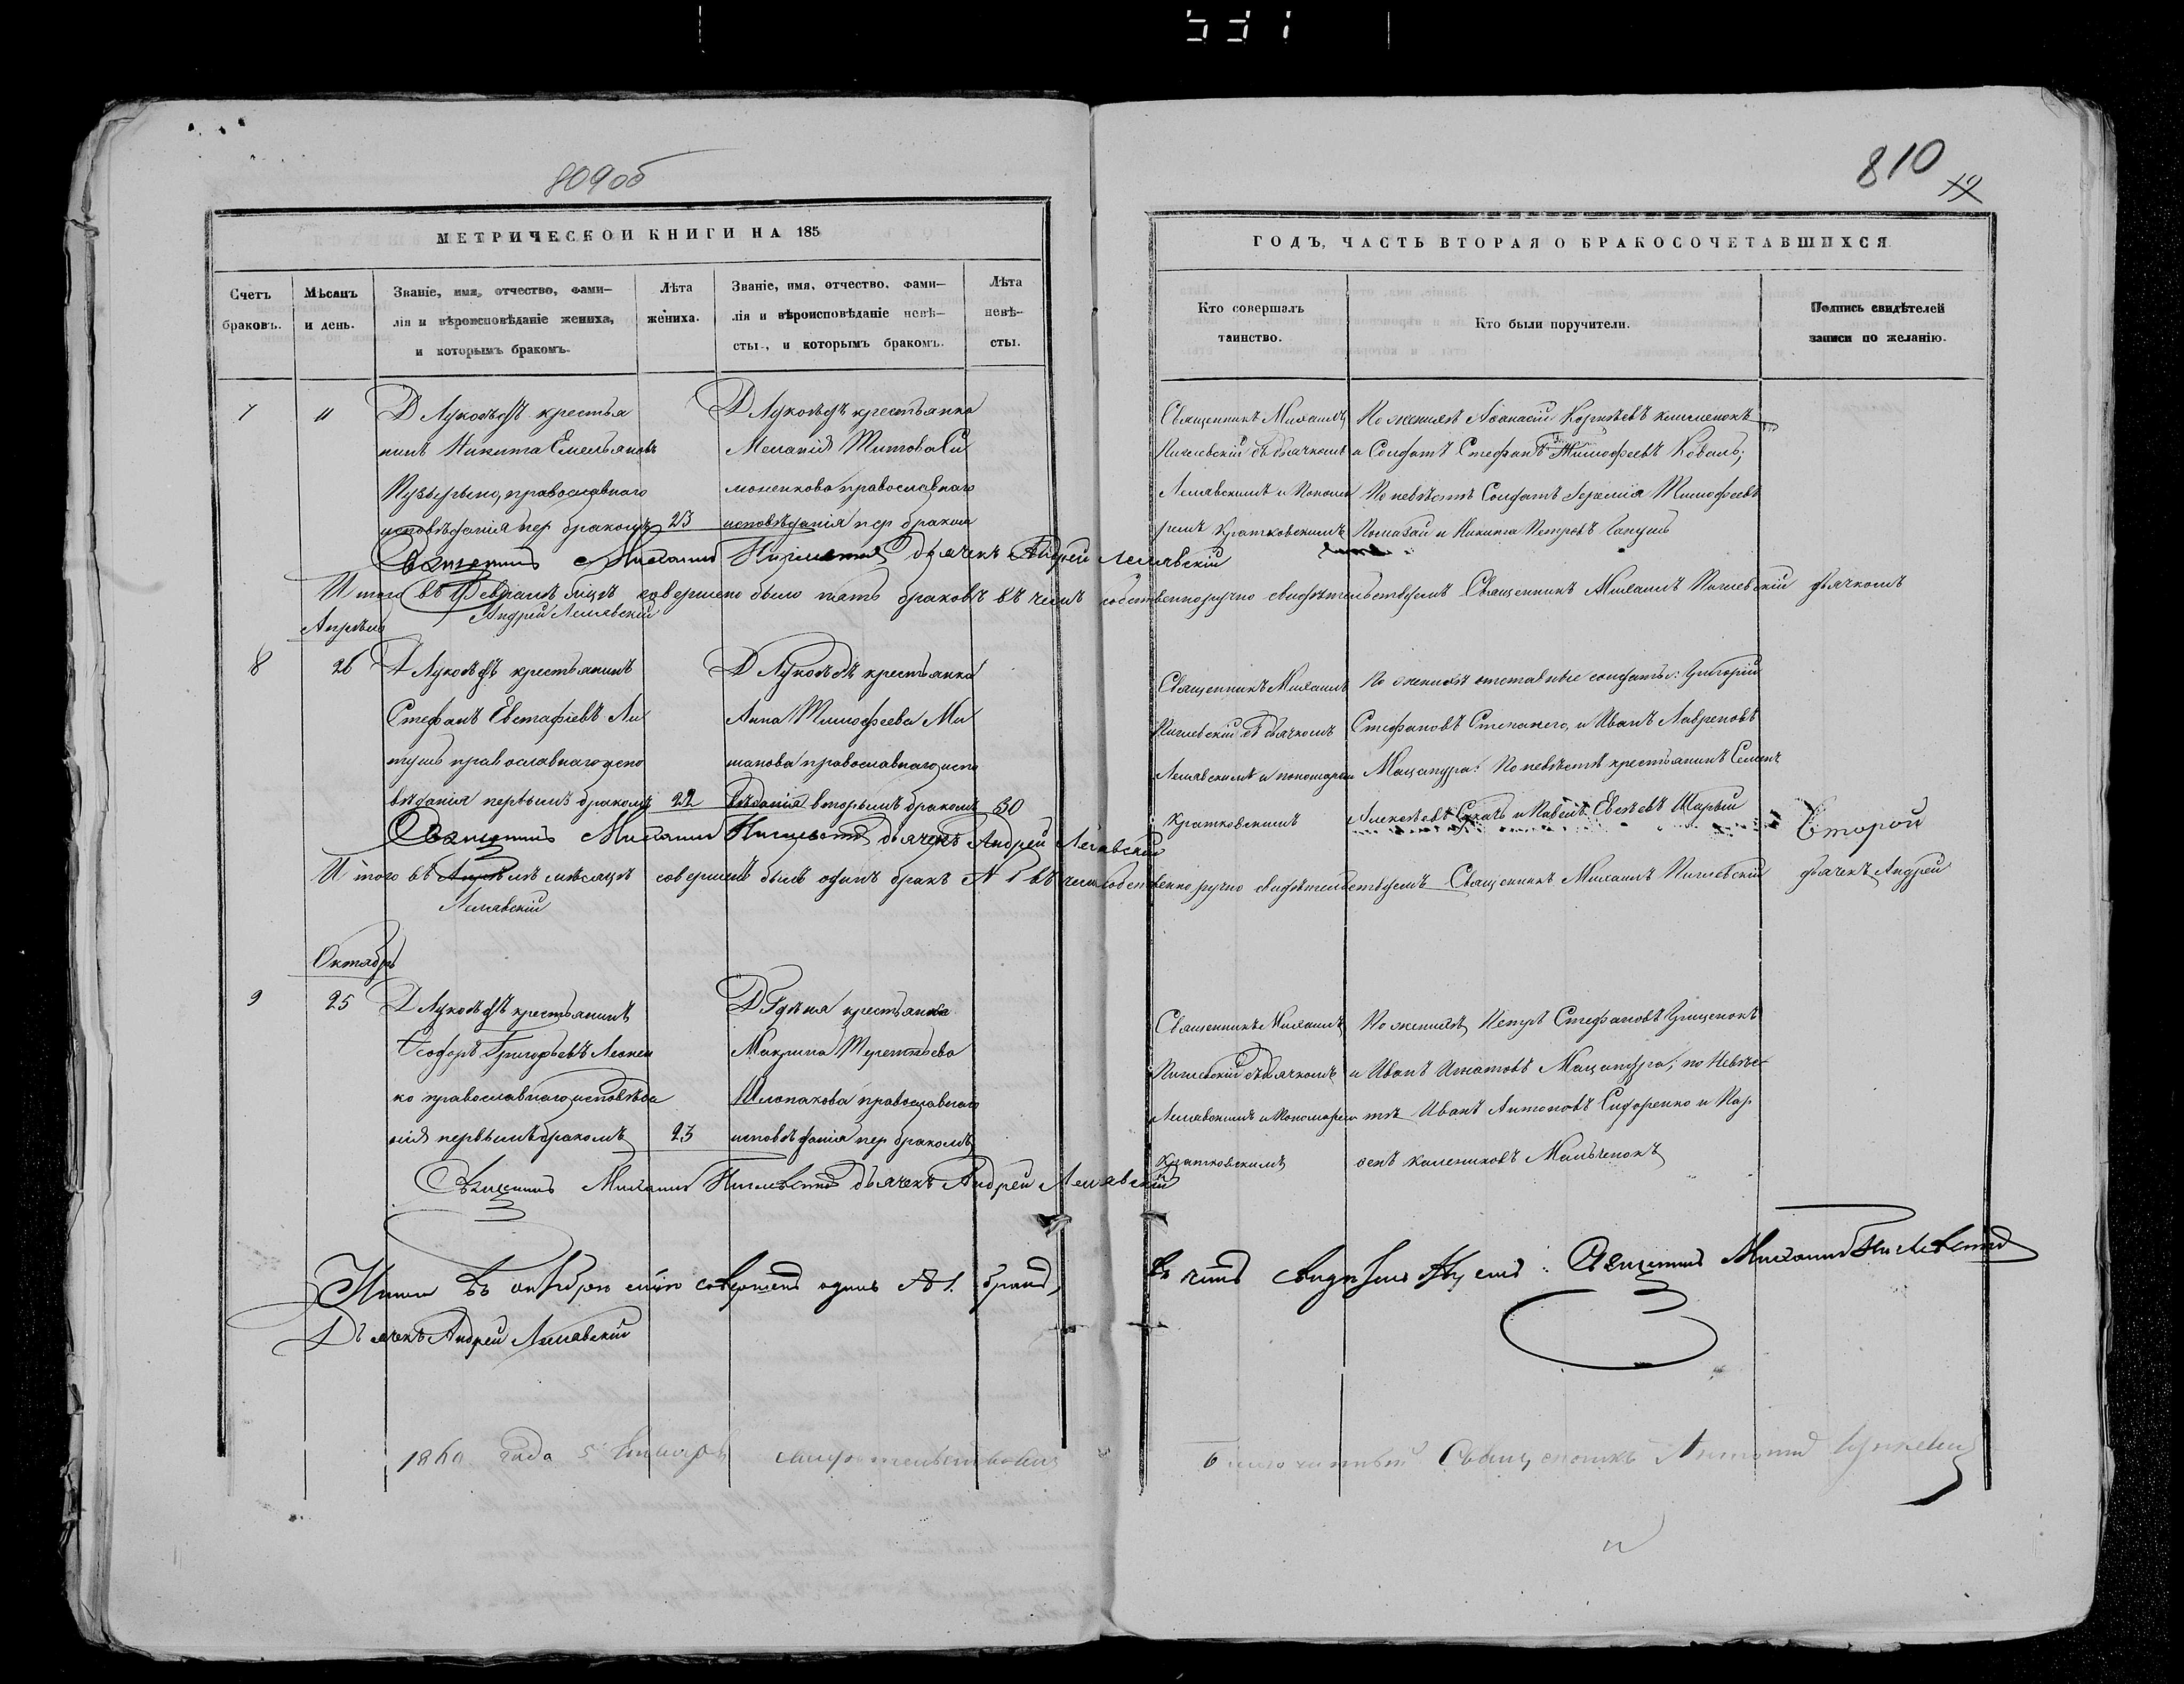 531
809об
810
12
МЕТРИЧЕСКОЙ КНИГИ НА 185
ГОДЪ, ЧАСТЬ ВТОРАЯ О БРАКОСОЧЕТАВШИХСЯ
Счетъ
браковъ.
Мѣсяцъ
и день.
Званіе, имя, отчество, фами-
лія и вѣроисповѣданіе жениха,
и которымъ бракомъ.
Лѣта
жениха.
Званіе, имя, отчество, фами-
лія и вѣроисповѣданіе невѣ-
сты, и которымъ бракомъ.
Лѣта
невѣ-
сты.
Кто совершалъ
таинство.
Кто были поручители.
Подпись свидѣтелей
записи по желанію.
7
11
Д Лукоѣдъ крестья
нинъ Никита Емельяновъ
православнаго
исповѣданія пер бракомъ
23
Д Лукоѣдъ крестьянка
Меланія Титова Си
моненкова православнаго
исповѣданія пер бракомъ
Священникъ Михаилъ
съ дьячкомъ
Лелявскимъ и Понома
ремъ Кратковскимъ
По женихѣ Афанасій Корнѣевъ
и Солдатъ Стефанъ Тимофеевъ Коваль;
По невѣстѣ Солдатъ Іеремія Тимофеевъ
Помазай и Никита Петровъ
Священникъ Михаилъ дьячекъ Андрей Лелявскій
Итого въ Февралѣ мѣцѣ совершено было пять браковъ въ чемъ собственноручно свидѣтельствуемъ Священникъ Михаилъ дьячокъ
Андрей Лелявскій
Апрѣль
8
26
Д Лукоѣдъ крестьянинъ
Стефанъ Евстафіевъ Ли
тушъ православнаго испо
вѣданія первымъ бракомъ
22
Д Лукоѣдъ крестьянка
Анна Тимофеева Ми
шакова православнаго испо
вѣданія вторымъ бракомъ
30
Священникъ Михаилъ
съ дьячкомъ
Лелявскимъ и пономаремъ
Кратковскимъ
По женихѣ отставные солдаты: Григорій
Стефановъ и Иванъ Лавреновъ
Мацапура: По невѣстѣ крестьянинъ Семенъ
Алексѣевъ и Павелъ Евсѣевъ Шарый
Второй
Священникъ Михаилъ дьячекъ Андрей Лелявскій
Итого въ Апрѣлѣ мѣсяцѣ совершенъ былъ одинъ бракъ № 1 въ чемъ собственноручно свидѣтельствуемъ Священникъ Михаилъ дьячекъ Андрей
Лелявскій
Октябрь
9
25
Д Лукоѣдъ крестьянинъ
Ѳеодоръ Григорьевъ Леонен
ко православнаго исповѣда
нія первымъ бракомъ
23
крестьянка
Макрина Терентьева
православнаго
исповѣданія пер бракомъ
Священникъ Михаилъ
съ дьячкомъ
Лелявскимъ и Пономаремъ
Кратковскимъ
По женихѣ Петръ Стефановъ Грищенокъ
и Иванъ Игнатовъ Мацапура; по Невѣс
тѣ Иванъ Антоновъ Сидоренко и Пар
ѳенъ Калениковъ Мальченокъ
Священникъ Михаилъ дьячекъ Андрей Лелявскій
Итого въ октябрѣ мцѣ совершенъ одинъ № 1. бракъ, въ чемъ свидѣтельствуемъ: Священникъ Михаилъ
Дьячекъ Андрей Лелявскій
1860 года 5 Января свидѣтельствовалъ Благочинный Священникъ